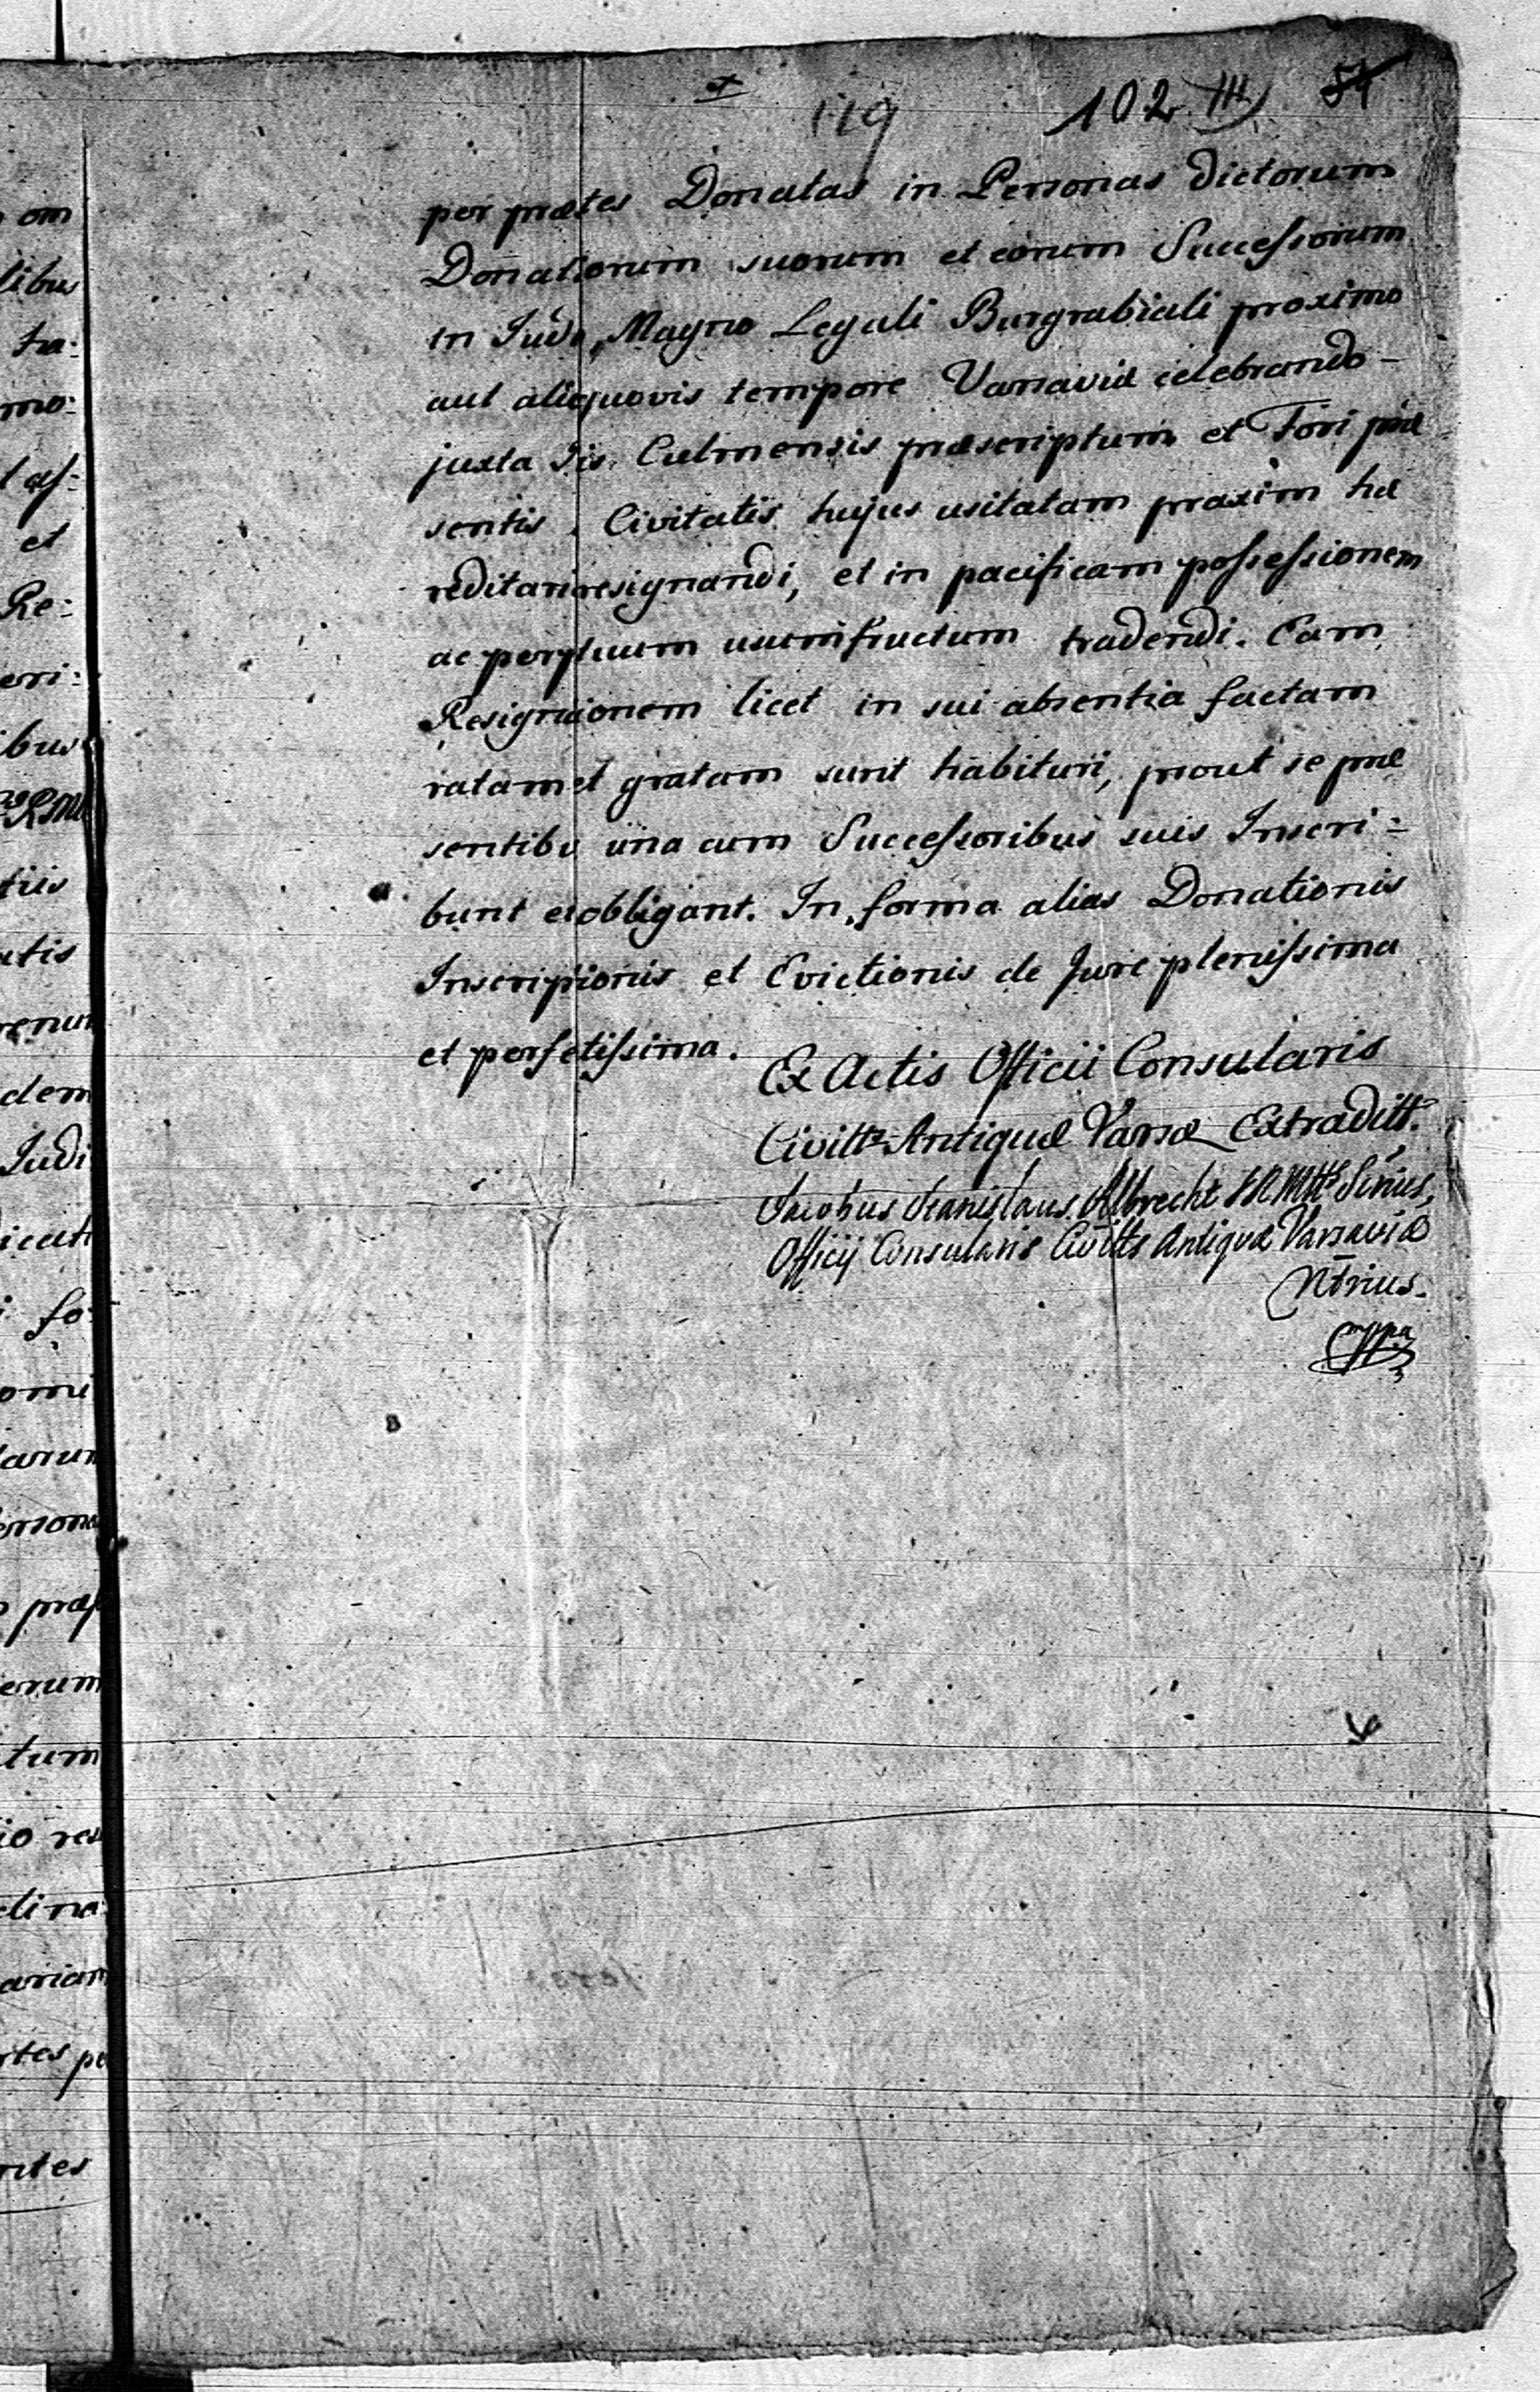 119 102. III 54
per prætes Donatas in Personas dictorum
Donatiorum suorum et eorum Successorum
in Judo Magno Legali Burgrabiali proximo
aut aliquovis tempore Varsaviæ celebrando
juxta Jis Culmensis præscriptum et Fori præ
sentis Civitatis hujus usitatam praxim hæ
reditarieresignandi, et in pacificam possessionem
ac perptuum usumfructum tradendi. Eam
Resignaionem licet in sui absentia factam
ratamet gratam sunt habituri, prout se præ
sentibu una cum Successoribus suis Inscri=
bunt etobligant. In forma alias Donationis
Inscriptionis et Evictionis de Jure plenissima
et perfetissima.
Ex Actis Officii Consularis
Civitts Antiquæ Varsæ Extraditt.
Jacobus Stanislaus Albrecht SRMtts Srius,
Officij Consularis Civitts Antiquæ Varsaviæ
Ntrius.
om
libus
tra:
mo:
et
Re:
eri:
ibus
tiis
atis
renun
dem
Judi
icati
fo:
omi
larum
ersona
præs
erum
tum
io res
dina
ariam
rtes pe
ntes